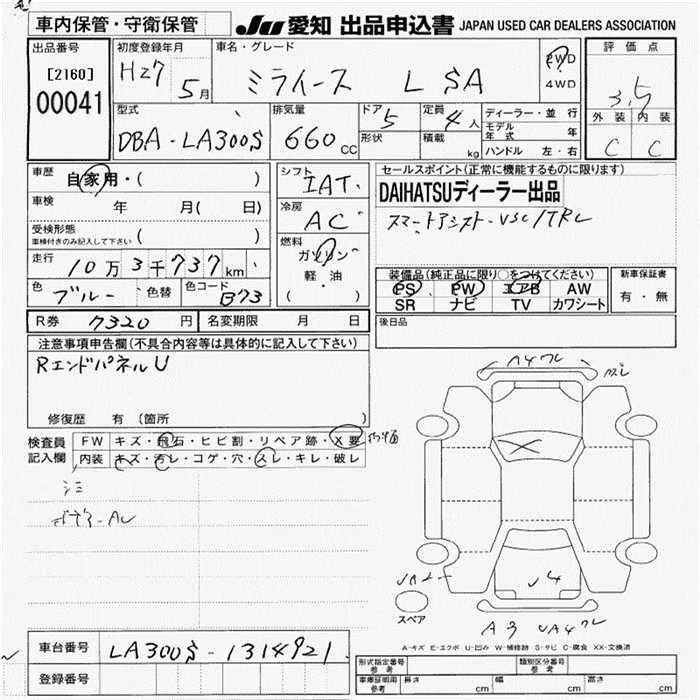 車内保管・守衛保管
JU 愛知 出品申込書 JAPAN USED CAR DEALERS ASSOCIATION
出品番号
[2160]
00041
初度登録年月
H27 5月
車名・グレード
ミライース L SA
2WD
4WD
評価点
3.5
外装 内装
C C
型式
DBA-LA300S
排気量
660 CC
ドア 5
形状
定員 4人
積載 kg
ディーラー・並行
モデル年式 年
ハンドル 左・右
車歴 自家用・( )
車検 年 月( 日)
受検形態
車検付きのみ記入して下さい ( )
走行 10万3千737km
色 ブルー 色替 色コード B73
シフト
IAT
冷房
AC
燃料
ガソリン
軽・油
( )
セールスポイント(正常に機能するものに限ります)
DAIHATSUディーラー出品
スマートアシスト・VSC/TRC
装備品(純正品に限り○をつけてください)
PS PW エアB AW
SR ナビ TV カワシート
新車保証書
有・無
R券 7320円 名変期限 月 日
後日品
注意事項申告欄(不具合内容等は具体的に記入して下さい)
RエンドパネルU
修復歴 有(箇所 )
検査員
記入欄
FW キズ・飛石・ヒビ割・リペア跡・X要
内装 キズ・汚レ・コゲ・穴・スレ・キレ・破レ
シミ
A4
X
U4
A3 UA4
スペア
A-キズ E-エクボ U-凹み W-補修跡 S-サビ C-腐食 XX-交換済
車台番号 LA300S-1314921
登録番号
形式指定番号
参考
類別区分番号
参考
車庫証明用
参考
長さ cm 幅 cm 高さ cm